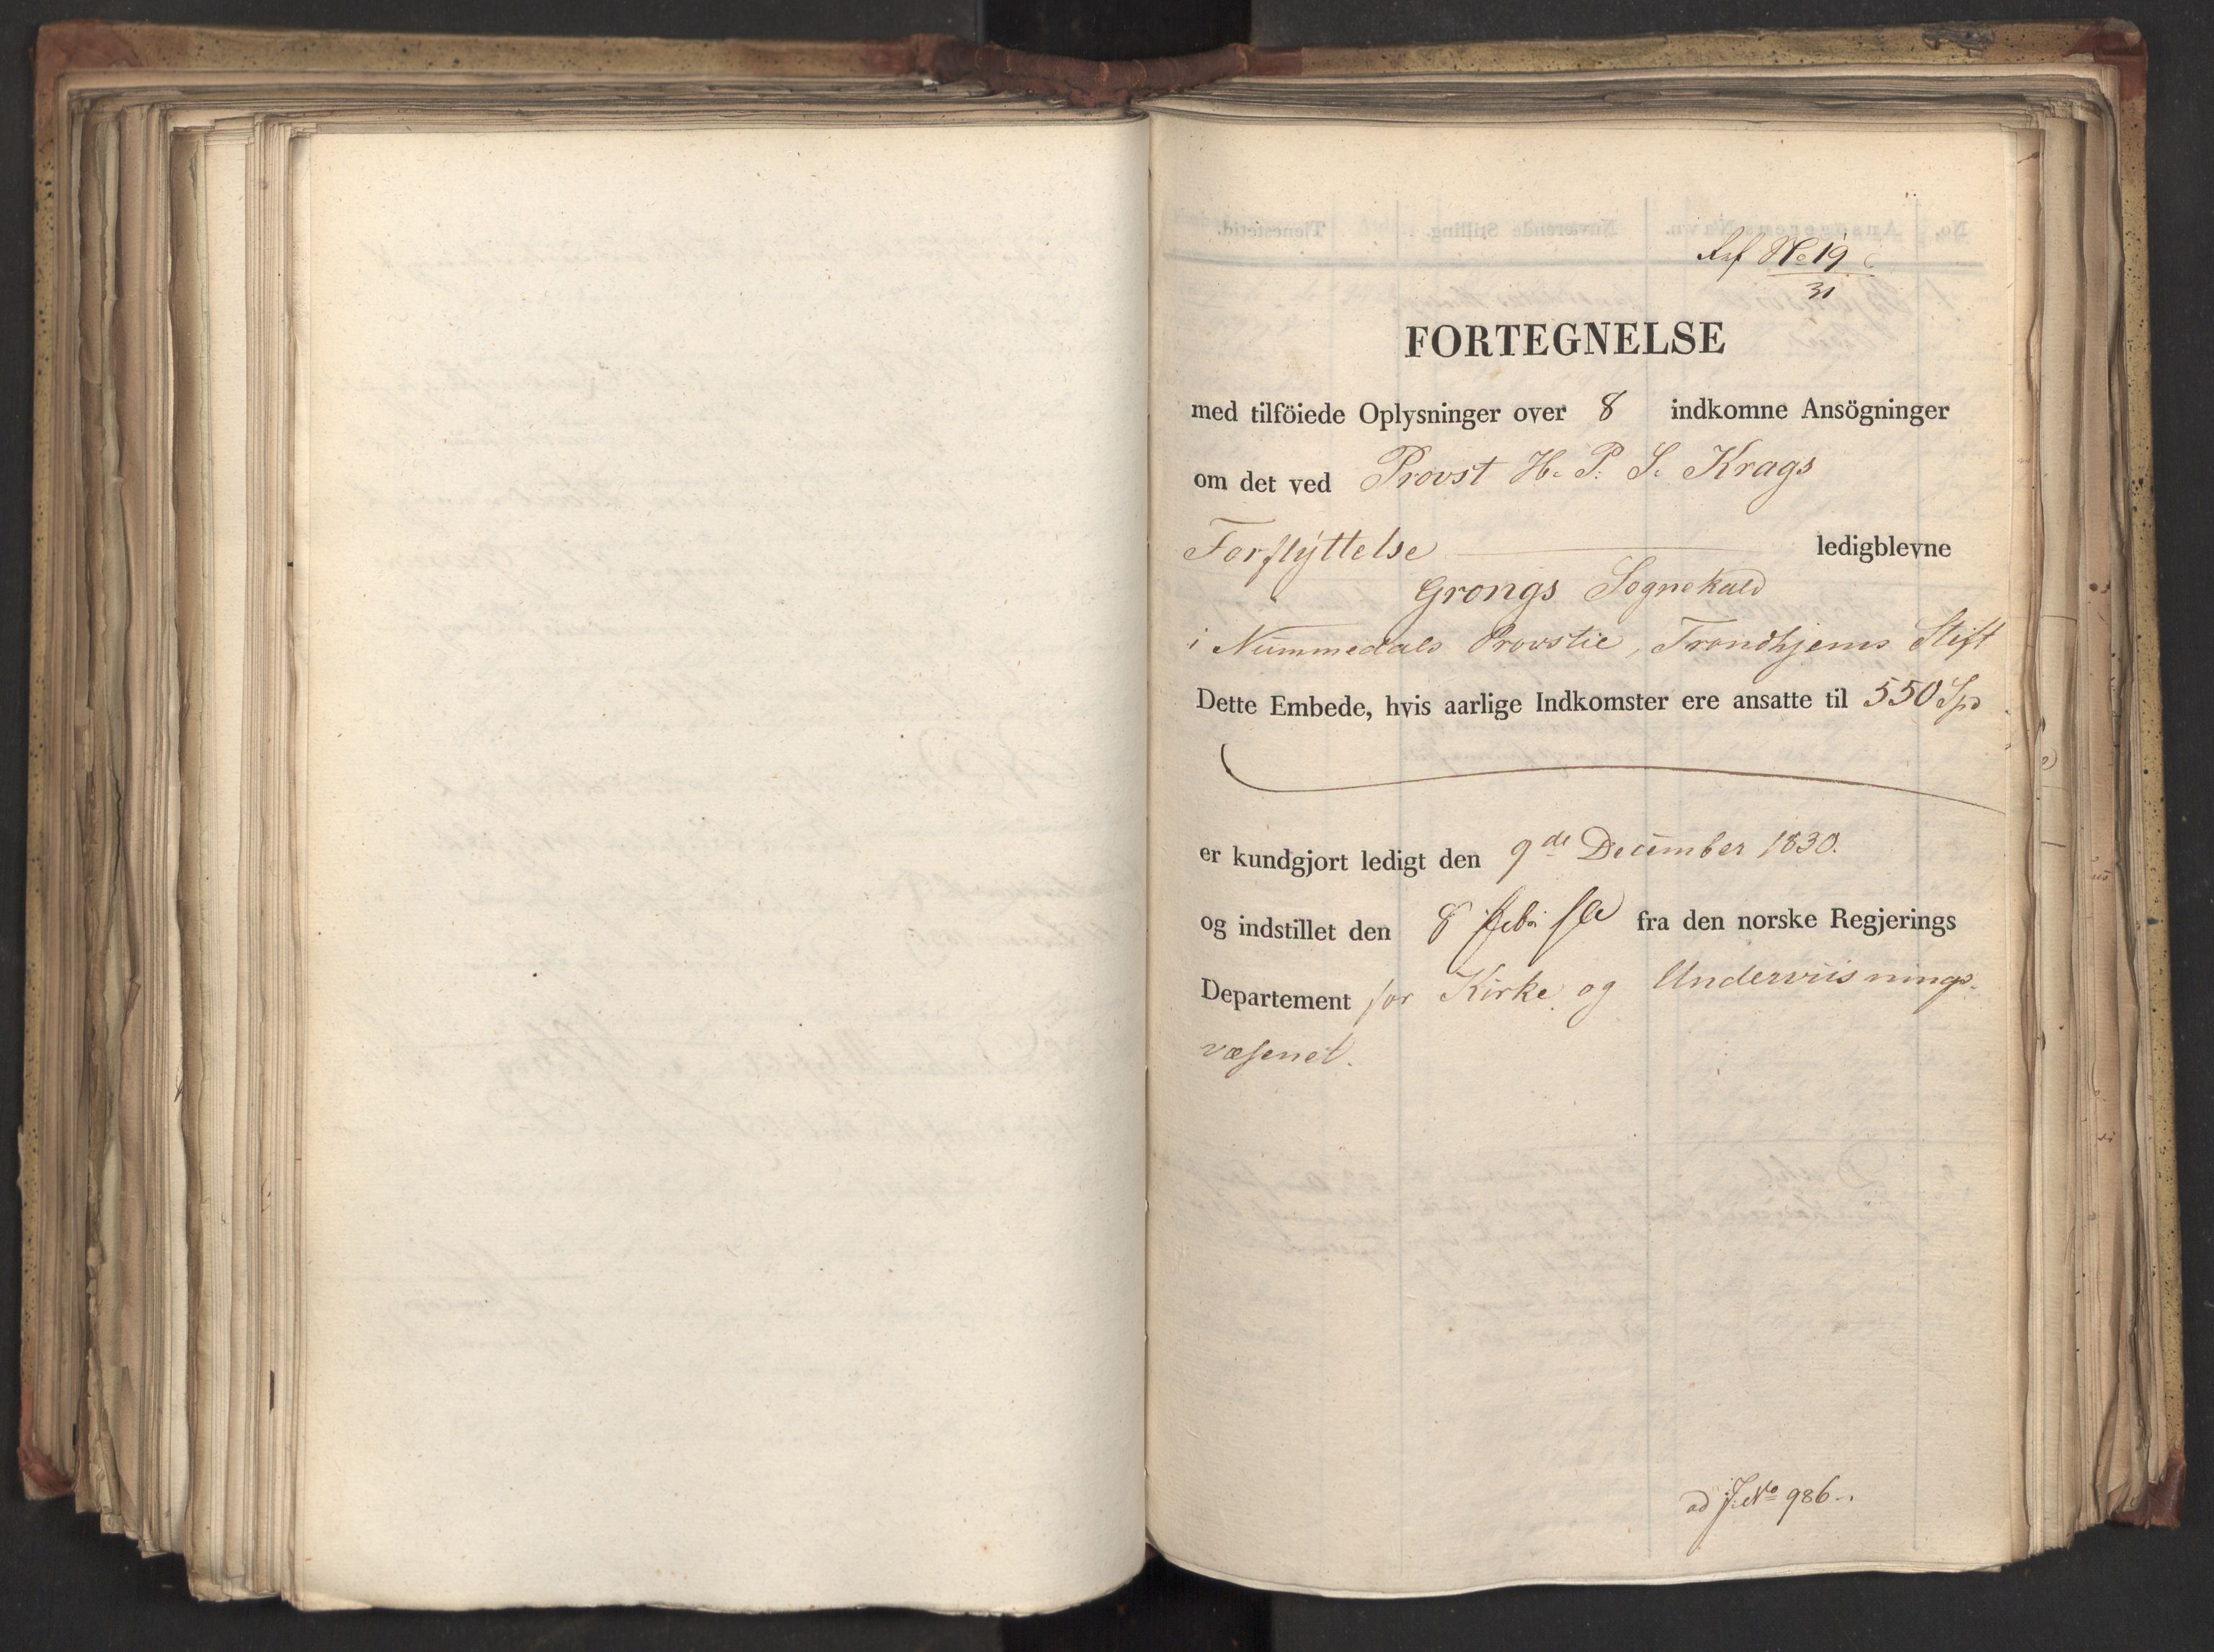 Ref No 19
31
FORTEGNELSE
med tilföiede Oplysninger over 8 indkomne Ansögninger
om det ved Provst H. P. S. Krags
Forflyttelse ledigblevne
Grongs Sognekald
i Nummedals Provstie, Trondhjems Stift
Dette Embede, hvis aarlige Indkomster ere ansatte til 550 Spd
er kundgjort ledigt den 9de December 1830.
og indstillet den 8 Feb. fra den norske Regjerings
Departement for Kirke og Underviisnings-
væsenet.
ad J. No 986.